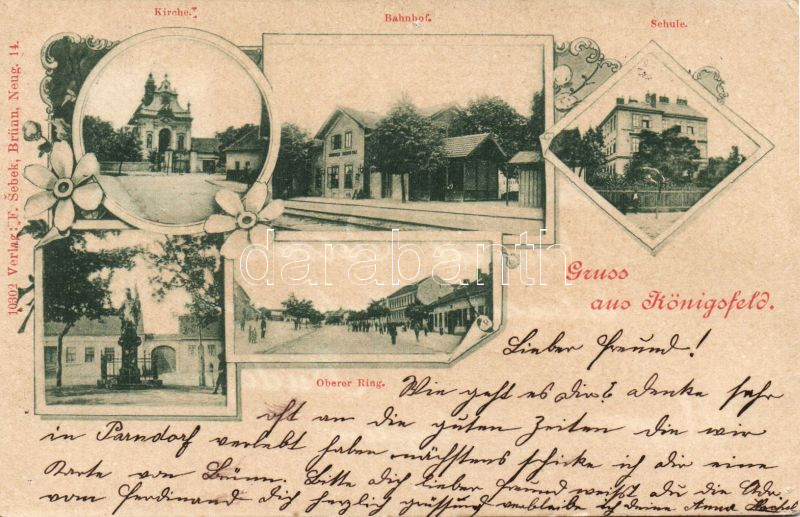 Kirche.
Bahnhof.
Schule.
10302 Verlag: F. Šebek, Brünn, Neug. 14.
Gruss
aus Königsfeld.
Oberer Ring.
darabanth
Lieber Freund!
Wie geht es dir? denke sehr
oft an die guten Zeiten die wir
in Parndorf verlebt haben nächstens schicke ich dir eine
Karte von Brünn. Bitte dich lieber Freund weißt du die Adr.
vom Ferdinand dich herzlich grüssend verbleibe ich deine Anna